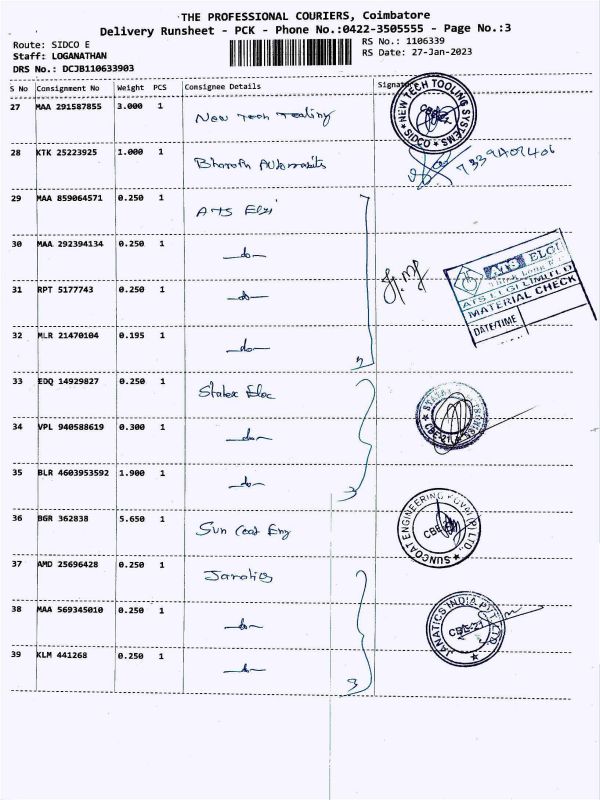 THE PROFESSIONAL COURIERS, Coimbatore
Delivery Runsheet - PCK - Phone No.:0422-3505555 - Page No.:3
Route: SIDCO E
RS No.: 1106339
Staff: LOGANATHAN
RS Date: 27-Jan-2023
DRS No.: DCJB110633903
S No Consignment No Weight PCS Consignee Details Signature
27 MAA 291587855 3.000 1 New Tech Tooling
NEW TECH TOOLING SYSTEMS ★ SIDCO ★
28 KTK 25223925 1.000 1 Bharath
29 MAA 859064571 0.250 1 ATS Elgi
30 MAA 292394134 0.250 1 -do-
ATS ELGI
ATS ELGI LIMITED
MATERIAL CHECK
DATE/TIME
31 RPT 5177743 0.250 1 -do-
32 MLR 21470104 0.195 1 -do-
33 EDQ 14929827 0.250 1 Statex Elec
CBE-21
34 VPL 940588619 0.300 1 -do-
35 BLR 4603953592 1.900 1 -do-
3
36 BGR 362838 5.650 1 Sun Coat Eng
SUNCOAT ENGINEERING KOVAI (P) LTD., ★
CBE
37 AMD 25696428 0.250 1 Janatics
38 MAA 569345010 0.250 1 -do-
JANATICS INDIA PVT. LTD. ★
CBE-21
39 KLM 441268 0.250 1 -do-
3